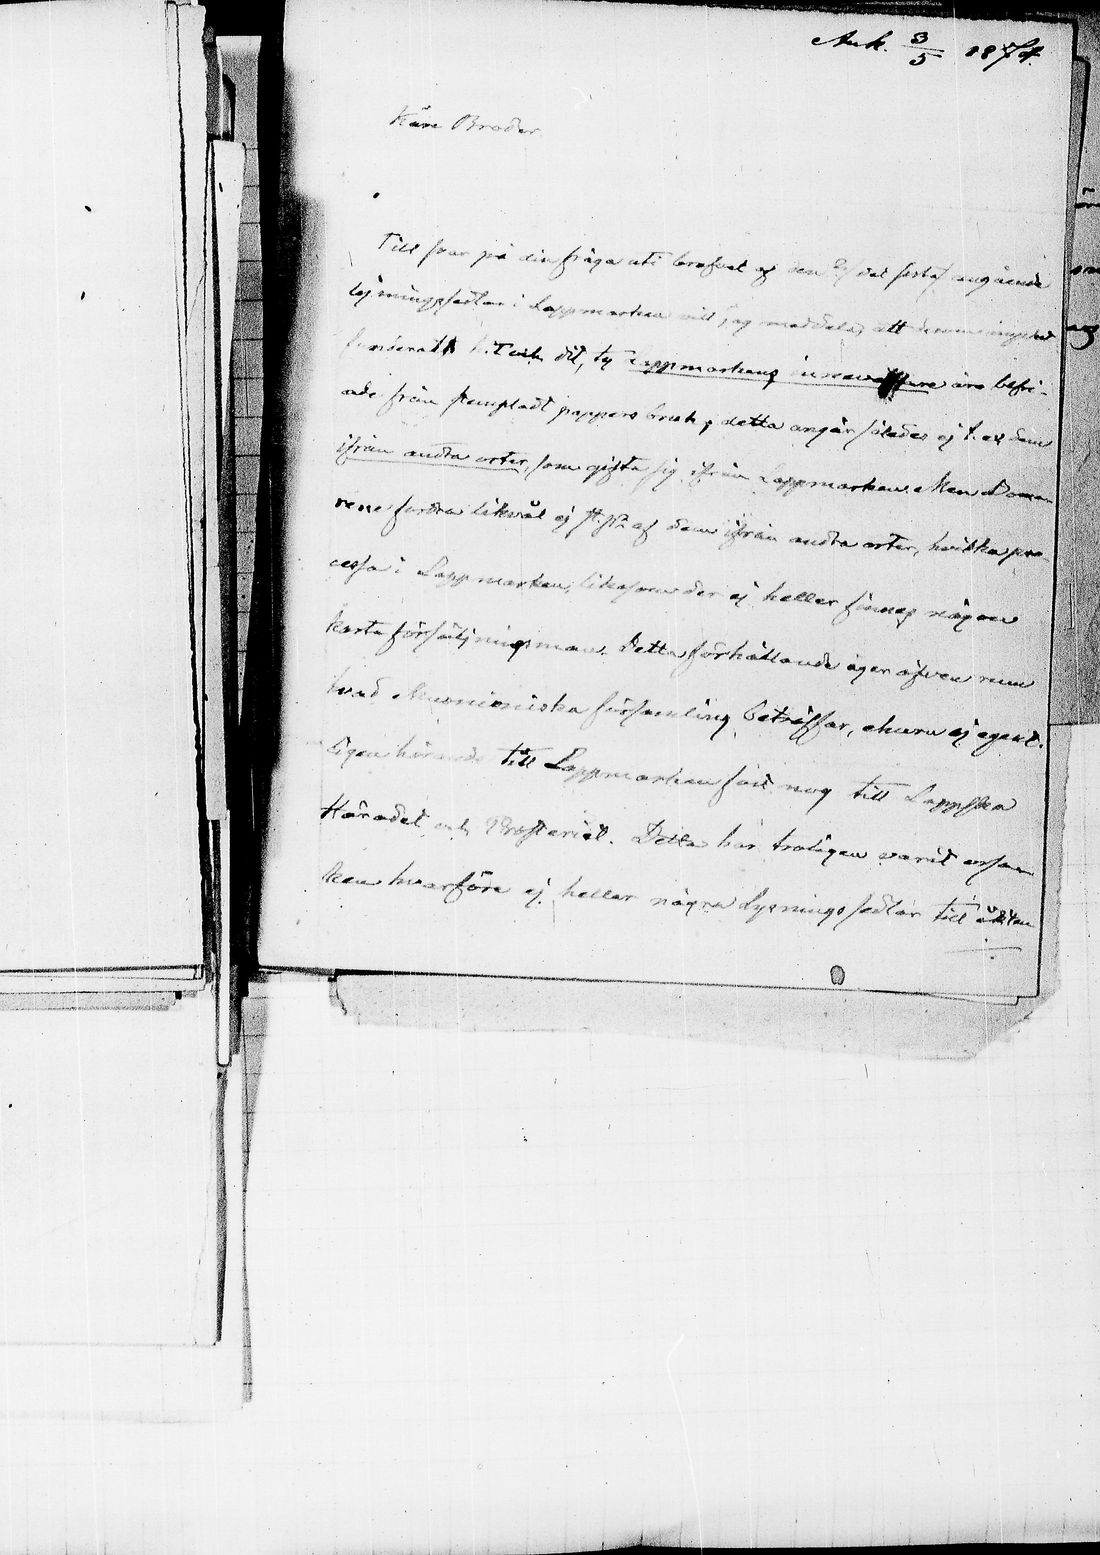 Ank. 3/5 1874.
Käre Broder
Till svar på din fråga uti brefvet af den 2/ angående
lysningssedlar i Lappmarken vill jag meddela, att
dit, ty Lappmarkens innevånare äro befri-
ade från stempladt pappers bruk; detta angår således ej t. ex. dem
ifrån andra orter, som gifta sig ifrån Lappmarken. Men Doma-
rene fordra likväl ej af dem ifrån andra orter, hvilka pro-
cessa i Lappmarken, likasom der ej heller finnes någon
karta försäljningsman. Detta förhållande äger äfven rum
hvad Muonioniska församling beträffar, ehuru ej egent-
ligen hörande till Lappmarken nog till Lappska
Häradet och Prosteriet. Detta har troligen varit orsa-
ken hvarföre ej heller några Lysningssedlar till äkten-